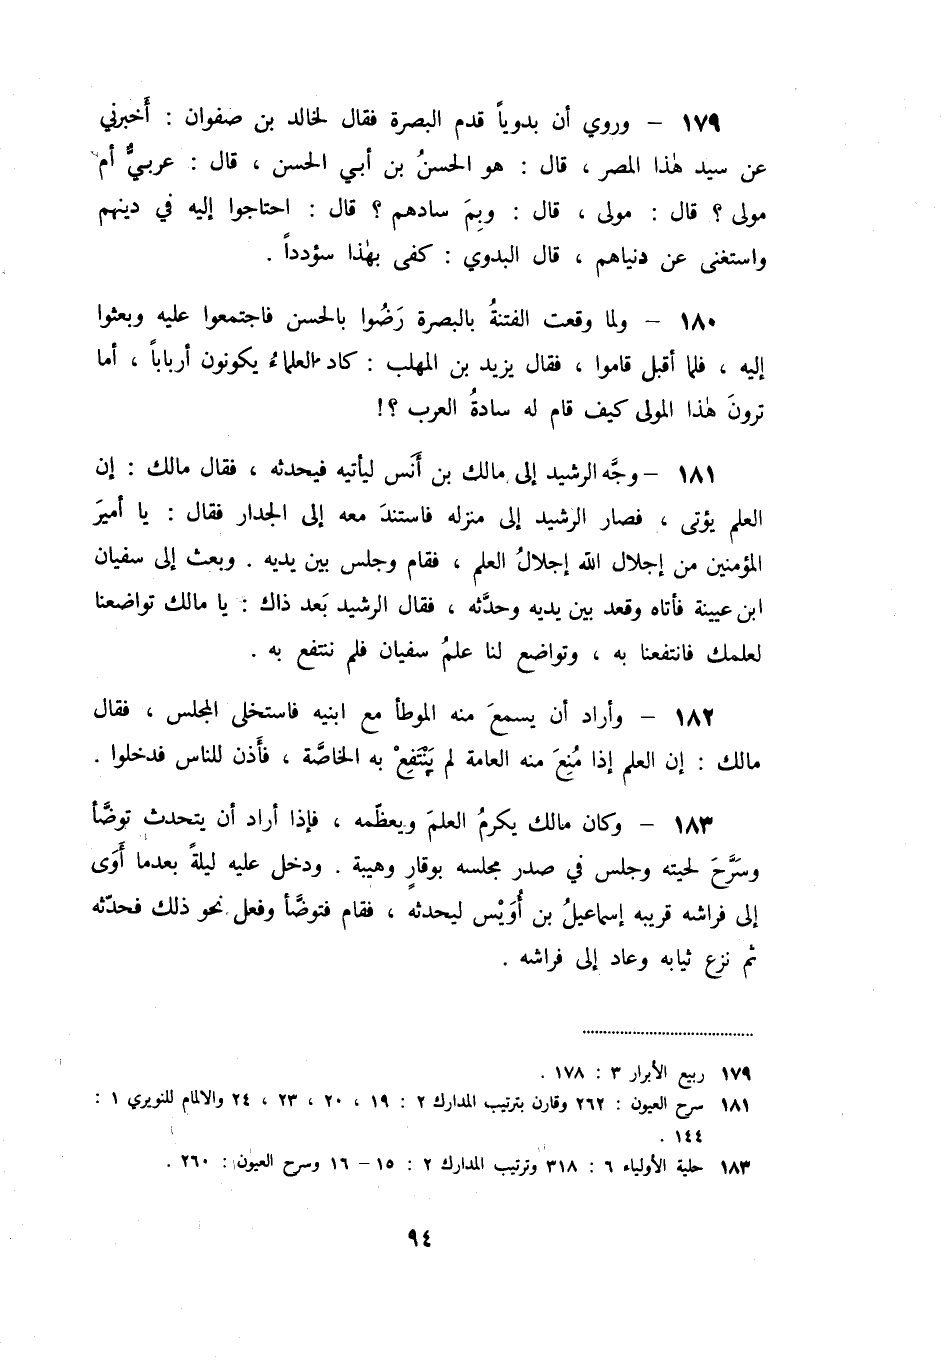 ١٧٩ – وروي أن بدوياً قدم البصرة فقال لخالد بن صفوان : أَخبرني
عن سيد هٰذا المصر ، قال : هو الحسنُ بن أبي الحسن ، قال : عربيٌّ أم
مولى ؟ قال : مولى ، قال : وبِمَ سادهم ؟ قال : احتاجوا إليه في دينهم
واستغنى عن دنياهم ، قال البدوي : كفى بهٰذا سؤدداً .
١٨٠ – ولما وقعت الفتنةُ بالبصرة رَضُوا بالحسن فاجتمعوا عليه وبعثوا
إليه ، فلما أقبل قاموا ، فقال يزيد بن المهلب : كاد العلماءُ يكونون أرباباً ، أما
ترونَ هٰذا المولى كيف قام له سادةُ العرب ؟!
١٨١ – وجَّه الرشيد إلى مالك بن أَنَس ليأتيه فيحدثه ، فقال مالك : إن
العلم يؤتى ، فصار الرشيد إلى منزله فاستندَ معه إلى الجدار فقال : يا أميرَ
المؤمنين من إجلال الله إجلالُ العلم ، فقام وجلس بين يديه . وبعث إلى سفيان
ابن عيينة فأتاه وقعد بين يديه وحدَّثه ، فقال الرشيد بَعد ذاك : يا مالك تواضعنا
لعلمك فانتفعنا به ، وتواضع لنا علمُ سفيان فلم ننتفع به .
١٨٢ – وأراد أن يسمعَ منه الموطأ مع ابنيه فاستخلى المجلس ، فقال
مالك : إن العلم إذا مُنِعَ منه العامة لم يَنْتَفِعْ به الخاصَّة ، فأَذن للناس فدخلوا .
١٨٣ – وكان مالك يكرمُ العلمَ ويعظّمه ، فإذا أراد أن يتحدث توضَّأ
وسَرَّحَ لحيته وجلس في صدر مجلسه بوقارٍ وهيبة . ودخل عليه ليلةً بعدما أَوَى
إلى فراشه قريبه إسماعيلُ بن أُوَيْس ليحدثه ، فقام فتوضَّأ وفعل نحو ذلك فحدّثه
ثم نزع ثيابه وعاد إلى فراشه .
١٧٩ ربيع الأبرار ٣ : ١٧٨ .
١٨١ سرح العيون : ٢٦٢ وقارن بترتيب المدارك ٢ : ١٩ ، ٢٠ ، ٢٣ ، ٢٤ والالمام للنويري ١ :
١٤٤ .
١٨٣ حلية الأولياء ٦ : ٣١٨ وترتيب المدارك ٢ : ١٥ – ١٦ وسرح العيون : ٢٦٠ .
٩٤